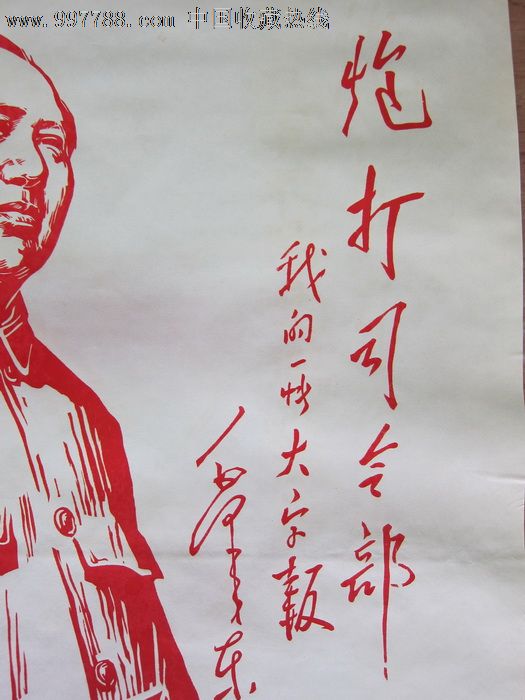 www.997788.com 中国收藏热线
炮打司令部
我的一张大字报
毛泽东